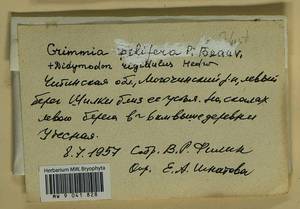 Grimmia pilifera P. Beauv.
+ Didymodon rigidulus Hedw.
Читинская обл., Могочинский р-н, левый
берег Шилки близ ее устья. На скалах
левого берега в 2 км выше деревни
Утесная.
8.7.1957 Собр. В.Р. Филин
Опр. Е.А. Игнатова
Herbarium MW, Bryophyta
MW 9 041 828